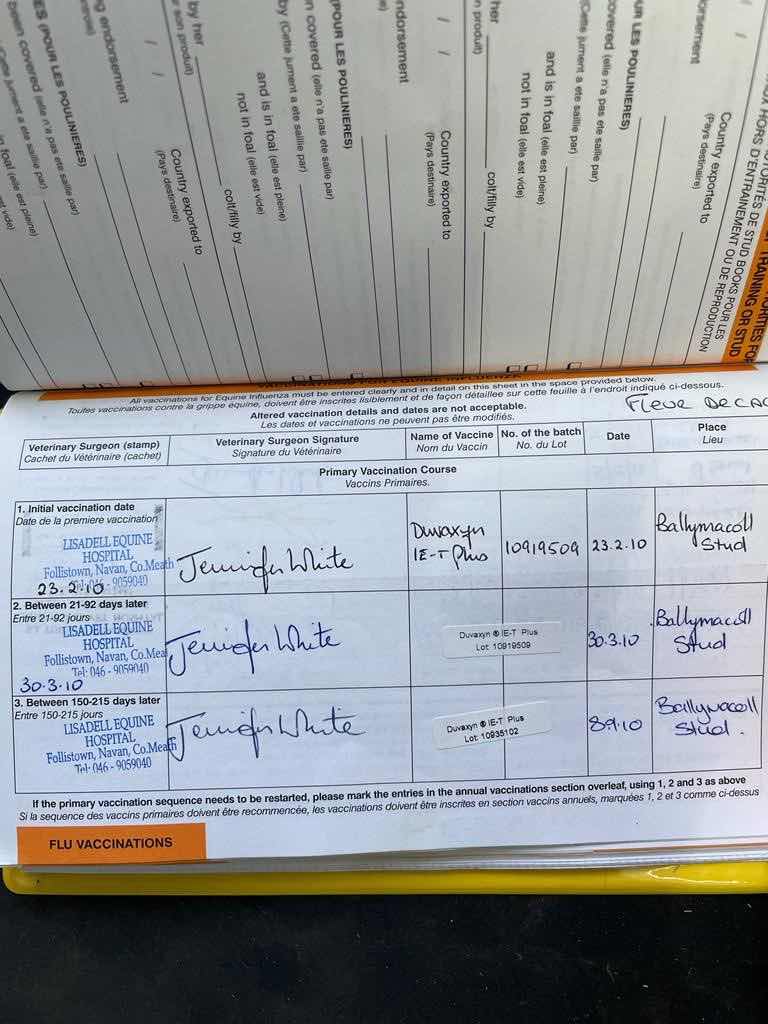 TRAINING OR STUD
D'ENTRAINEMENT OU DE REPRODUCTION
HORS
DE STUD BOOKS POUR LES
Country exported to
(Pays destinaire)
endorsement
/ /
(POUR LES POULINIERES)
covered (elle n'a pas ete saillie par)
by (Cette jument a ete saillie par)
and is in foal (elle est pleine)
not in foal (elle est vide)
colt/filly by
by her
son produit)
Country exported to
(Pays destinaire)
endorsement
/ /
(POUR LES POULINIERES)
covered (elle n'a pas ete saillie par)
by (Cette jument a ete saillie par)
and is in foal (elle est pleine)
not in foal (elle est vide)
colt/filly by
by her
son produit)
Country exported to
(Pays destinaire)
endorsement
/ /
(POUR LES POULINIERES)
been covered (elle n'a pas ete saillie par)
(Cette jument a ete saillie par)
in foal (elle est pleine)
All vaccinations for Equine Influenza must be entered clearly and in detail on this sheet in the space provided below.
Toutes vaccinations contre la grippe equine, doivent être inscrites lisiblement et de façon détaillée sur cette feuille à l'endroit indiqué ci-dessous.
Altered vaccination details and dates are not acceptable.
Les dates et vaccinations ne peuvent pas être modifiés.
FLEUR DE CAC
Veterinary Surgeon (stamp) Veterinary Surgeon Signature Name of Vaccine No. of the batch Date Place
Cachet du Vétérinaire (cachet) Signature du Vétérinaire Nom du Vaccin No. du Lot Lieu
Primary Vaccination Course
Vaccins Primaires.
1. Initial vaccination date
Date de la premiere vaccination
LISADELL EQUINE
HOSPITAL
Follistown, Navan, Co.Meath
Tel: 046 - 9059040
23.2.10
Jennifer White
Duvaxyn
IE-T Plus
10919509
23.2.10
Ballymacoll
Stud
2. Between 21-92 days later
Entre 21-92 jours
LISADELL EQUINE
HOSPITAL
Follistown, Navan, Co.Meath
Tel: 046 - 9059040
30.3.10
Jennifer White
Duvaxyn ® IE-T Plus
Lot: 10919509
30.3.10
Ballymacoll
Stud
3. Between 150-215 days later
Entre 150-215 jours
LISADELL EQUINE
HOSPITAL
Follistown, Navan, Co.Meath
Tel: 046 - 9059040
Jennifer White
Duvaxyn ® IE-T Plus
Lot: 10935102
8.9.10
Ballymacoll
Stud.
If the primary vaccination sequence needs to be restarted, please mark the entries in the annual vaccinations section overleaf, using 1, 2 and 3 as above
Si la sequence des vaccins primaires doivent être recommencée, les vaccinations doivent être inscrites en section vaccins annuels, marquées 1, 2 et 3 comme ci-dessus
FLU VACCINATIONS